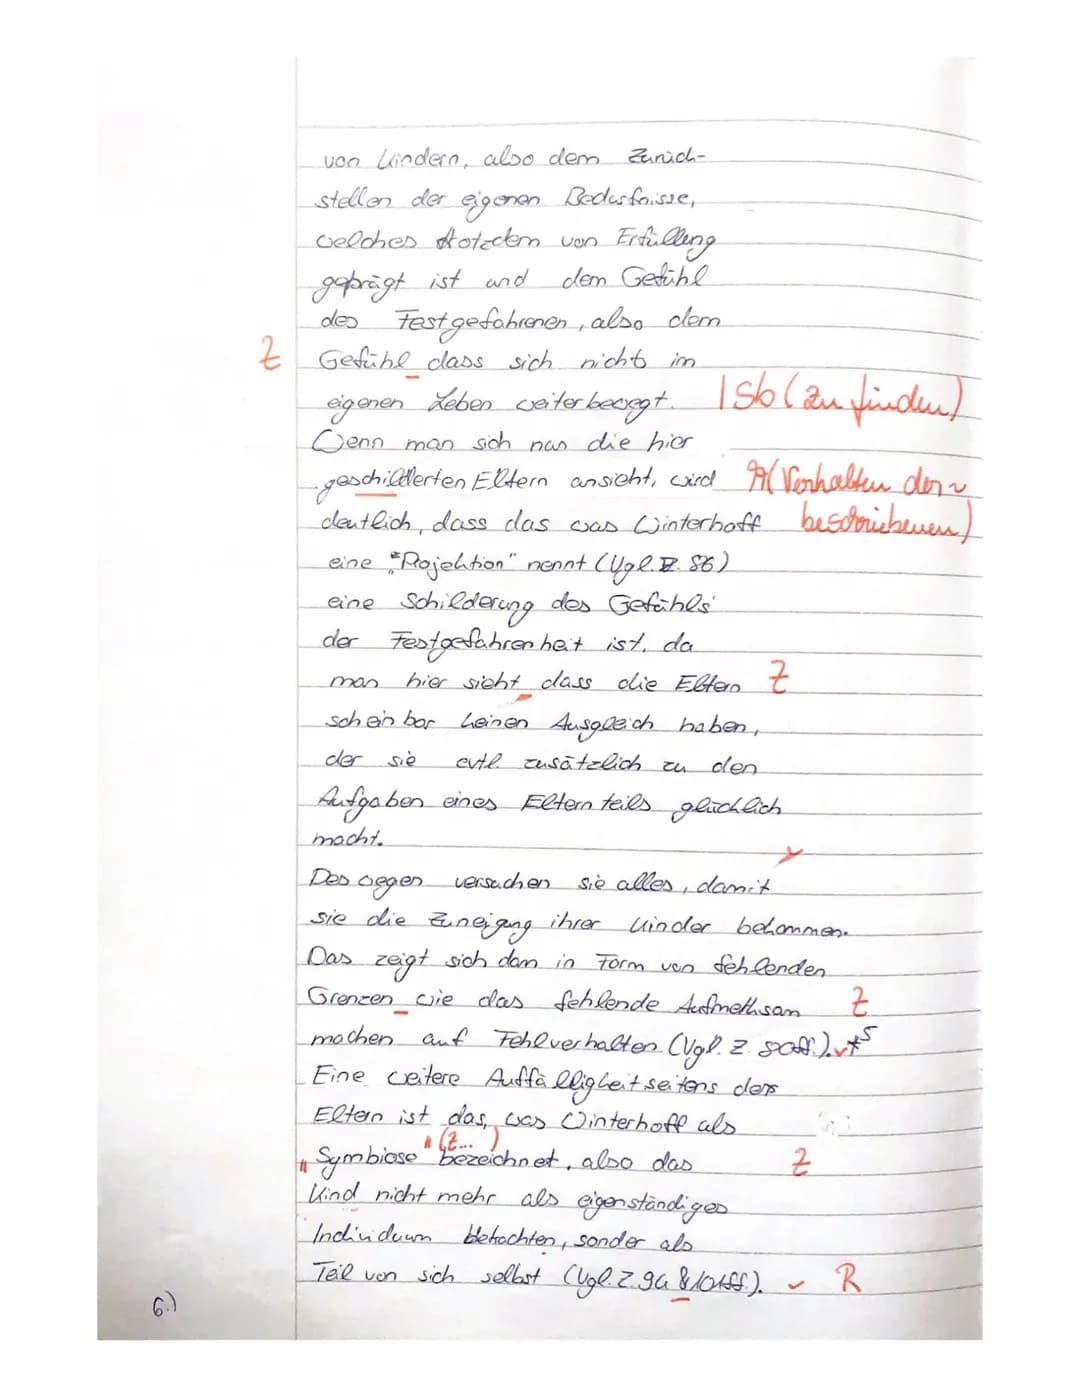 von Kindern, also dem Zurück-
stellen der eigenen Bedürfnisse,
welches trotzdem von Erfüllung
geprägt ist und dem Gefühl
des Festgefahrenen, also dem
Z Gefühl dass sich nichts im
eigenen Leben weiterbewegt. | Sb (zu finden)
Wenn man sich nun die hier
geschilderten Eltern ansieht, wird A (Verhalten der
deutlich, dass das was Winterhoff beschriebenen)
eine "Projektion" nennt (Vgl. Z. 86)
eine Schilderung des Gefühls
der Festgefahrenheit ist, da
man hier sieht dass die Eltern Z
scheinbar keinen Ausgleich haben,
der sie evtl. zusätzlich zu den
Aufgaben eines Elternteils glücklich
macht.
Deswegen versuchen sie alles, damit
sie die Zuneigung ihrer Kinder bekommen.
Das zeigt sich dann in Form von fehlenden
Grenzen wie das fehlende Aufmerksam Z
machen auf Fehlverhalten (Vgl. Z. 80ff.). ✓ *5
Eine weitere Auffälligkeit seitens der
Eltern ist das, was Winterhoff als
" (Z...)
"Symbiose bezeichnet, also das Z
Kind nicht mehr als eigenständiges
Individuum betrachten, sonder als
Teil von sich selbst (Vgl. Z. 94 & 101ff.). ✓ R
6.)